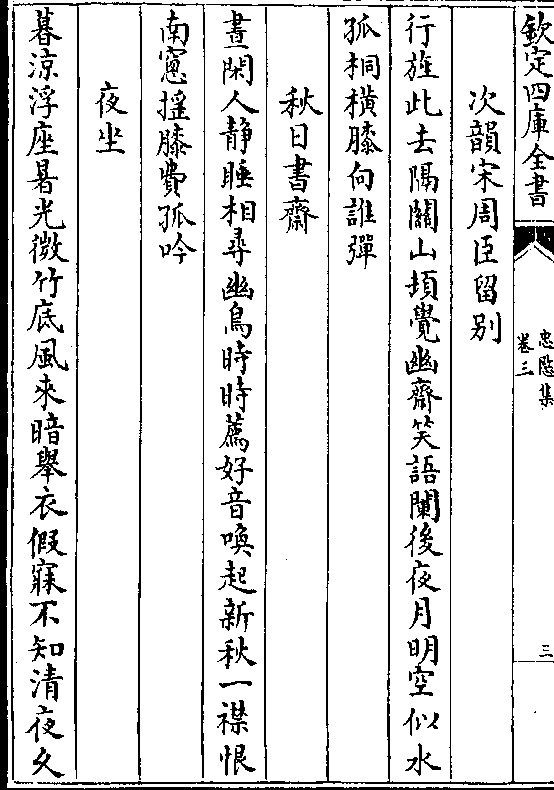 欽定四庫全書
忠愍集
卷三
三
次韻宋周臣留别
行旌此去隔關山頓覺幽齋笑語闌後夜月明空似水
孤桐横膝向誰彈
秋日書齋
晝閑人静睡相尋幽鳥時時薦好音喚起新秋一襟恨
南窻摇膝費孤吟
夜坐
暮涼浮座暑光微竹底風來暗舉衣假寐不知清夜久